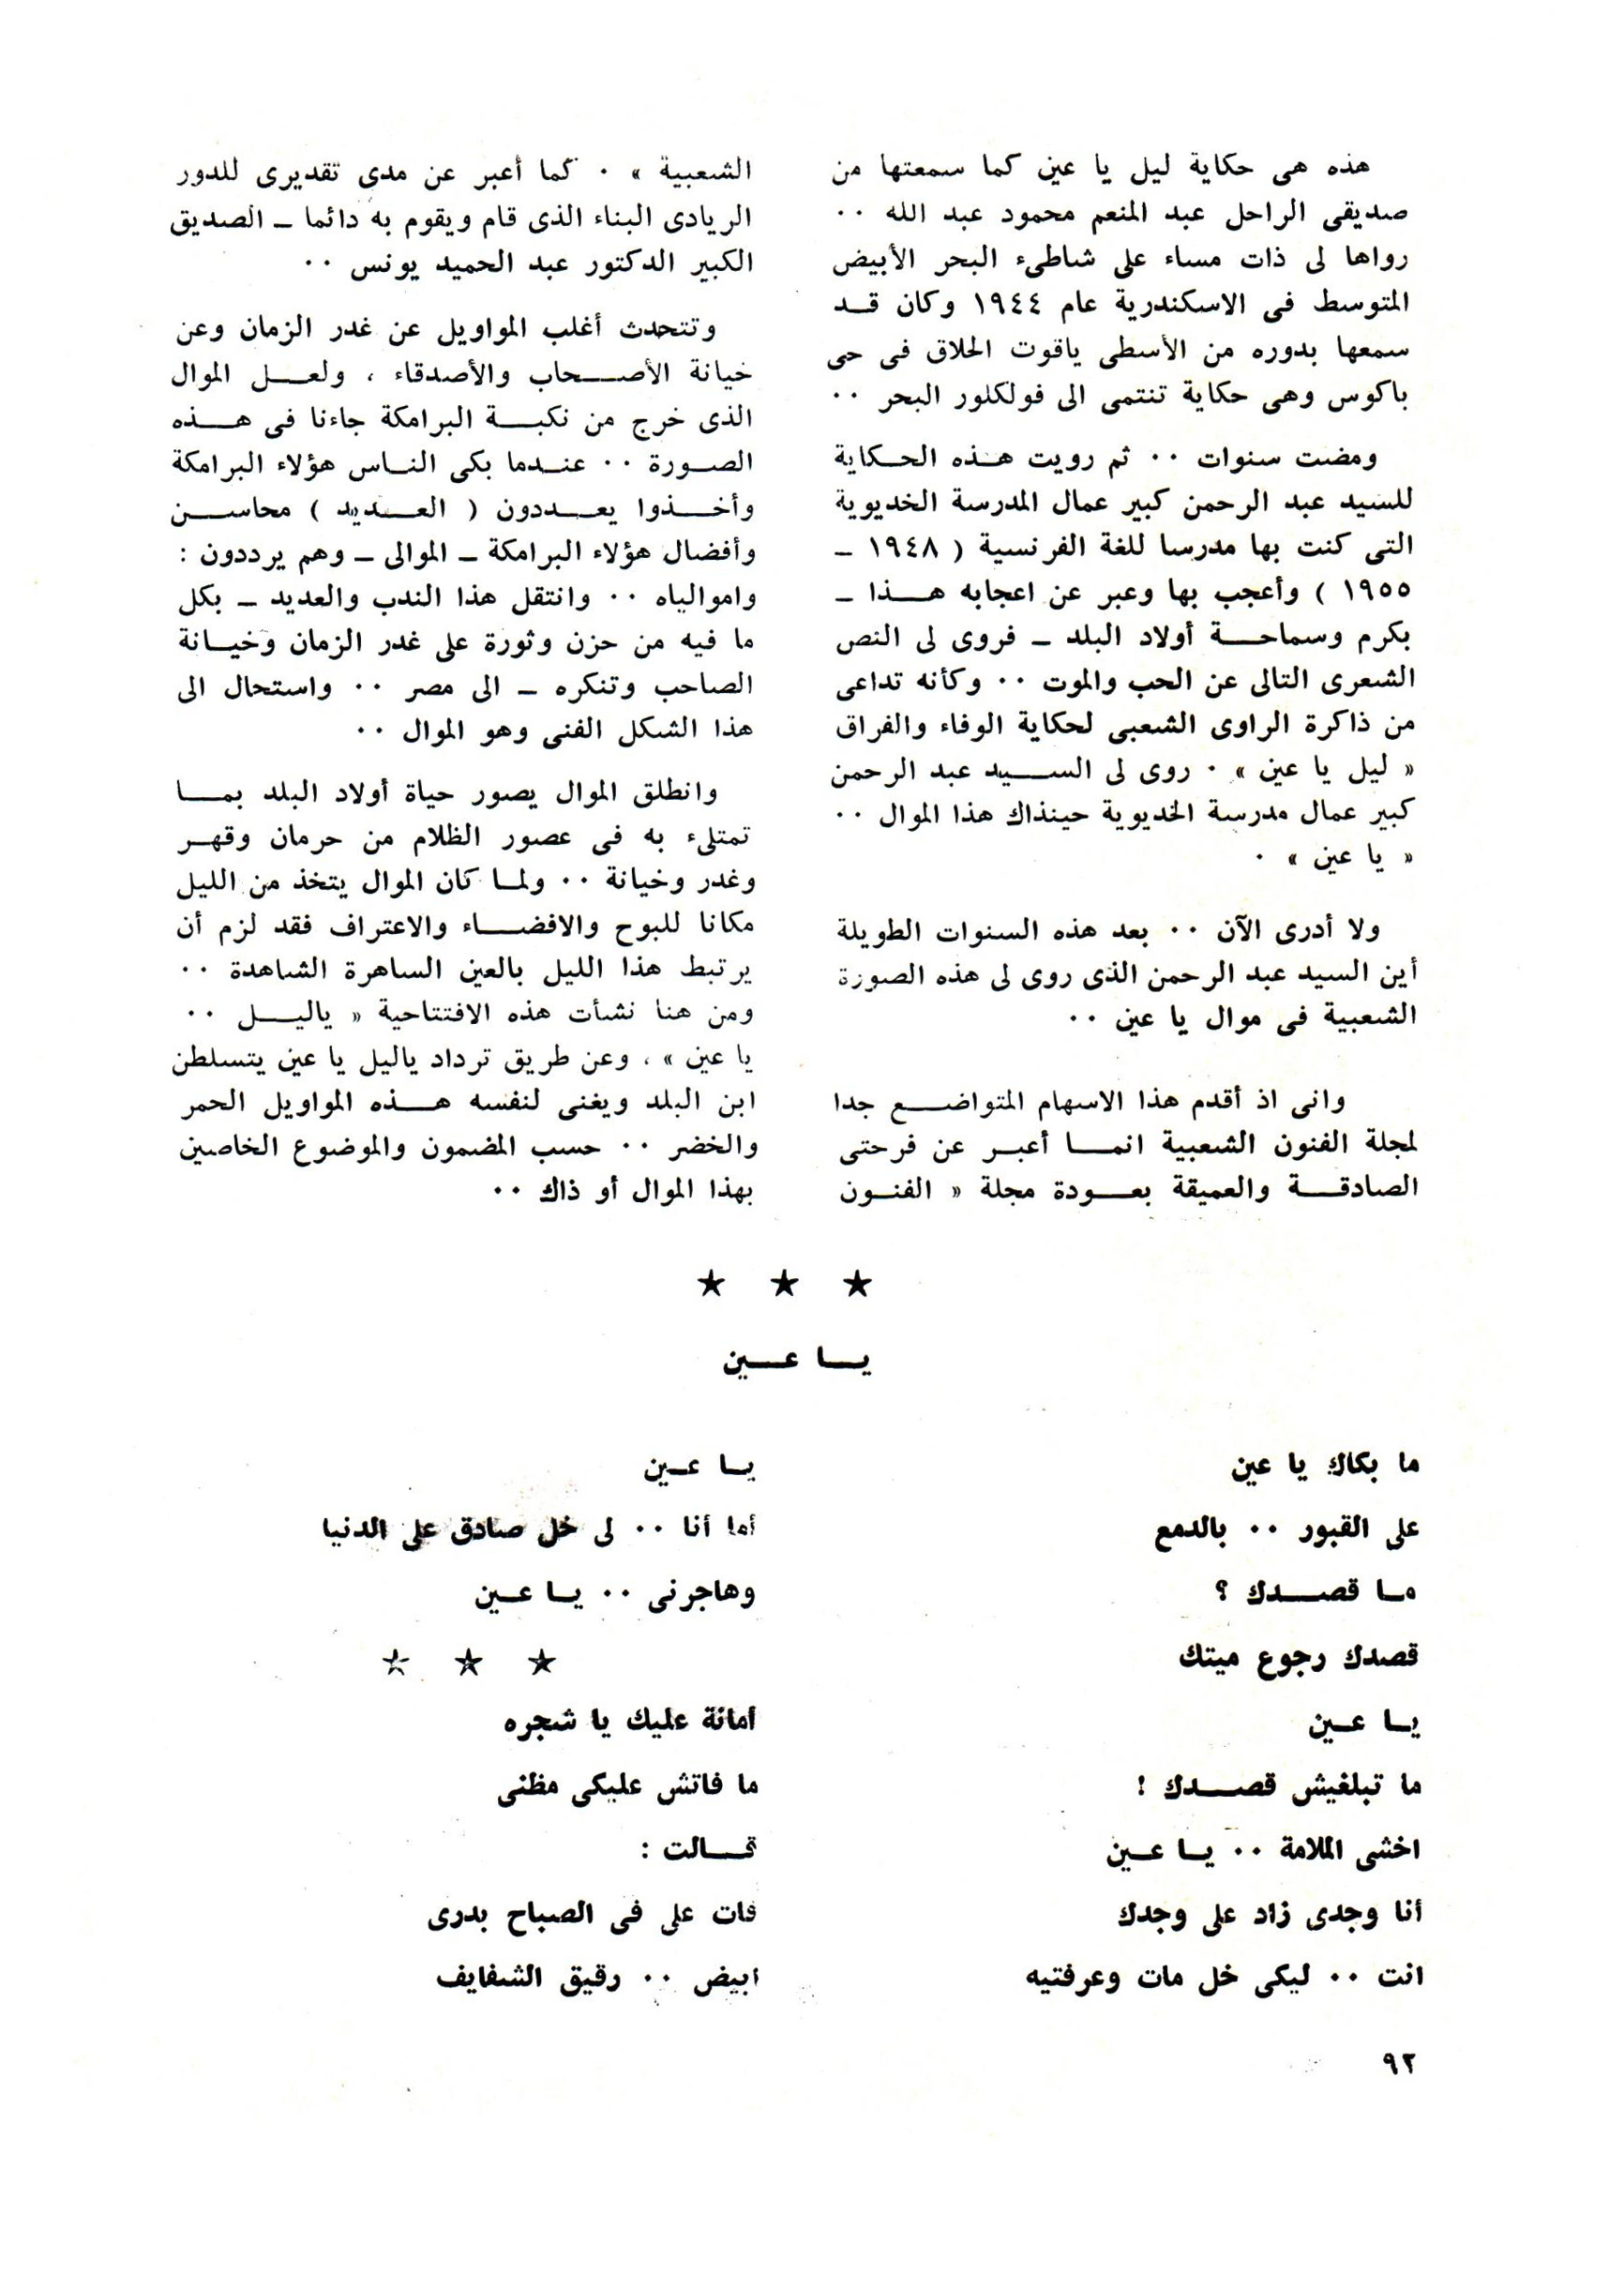 هذه هى حكاية ليل يا عين كما سمعتها من
صديقى الراحل عبد المنعم محمود عبد الله ٠٠
رواها لى ذات مساء على شاطىء البحر الأبيض
المتوسط فى الاسكندرية عام ١٩٤٤ وكان قد
سمعها بدوره من الأسطى ياقوت الحلاق فى حى
باكوس وهى حكاية تنتمى الى فولكلور البحر ٠٠
ومضت سنوات ٠٠ ثم رويت هذه الحكاية
للسيد عبد الرحمن كبير عمال المدرسة الخديوية
التى كنت بها مدرسا للغة الفرنسية ( ١٩٤٨ ــ
١٩٥٥ ) وأعجب بها وعبر عن اعجابه هذا ــ
بكرم وسماحة أولاد البلد ــ فروى لى النص
الشعرى التالى عن الحب والموت ٠٠ وكأنه تداعى
من ذاكرة الراوى الشعبى لحكاية الوفاء والفراق
« ليل يا عين » ٠ روى لى السيد عبد الرحمن
كبير عمال مدرسة الخديوية حينذاك هذا الموال ٠٠
« يا عين » ٠
ولا أدرى الآن ٠٠ بعد هذه السنوات الطويلة
أين السيد عبد الرحمن الذى روى لى هذه الصورة
الشعبية فى موال يا عين ٠٠
وانى اذ أقدم هذا الاسهام المتواضع جدا
لمجلة الفنون الشعبية انما أعبر عن فرحتى
الصادقة والعميقة بعودة مجلة « الفنون
الشعبية » ٠ كما أعبر عن مدى تقديرى للدور
الريادى البناء الذى قام ويقوم به دائما ــ الصديق
الكبير الدكتور عبد الحميد يونس ٠٠
وتتحدث أغلب المواويل عن غدر الزمان وعن
خيانة الأصحاب والأصدقاء ، ولعل الموال
الذى خرج من نكبة البرامكة جاءنا فى هذه
الصورة ٠٠ عندما بكى الناس هؤلاء البرامكة
وأخذوا يعددون ( العديد ) محاسن
وأفضال هؤلاء البرامكة ــ الموالى ــ وهم يرددون :
واموالياه ٠٠ وانتقل هذا الندب والعديد ــ بكل
ما فيه من حزن وثورة على غدر الزمان وخيانة
الصاحب وتنكره ــ الى مصر ٠٠ واستحال الى
هذا الشكل الفنى وهو الموال ٠٠
وانطلق الموال يصور حياة أولاد البلد بما
تمتلىء به فى عصور الظلام من حرمان وقهر
وغدر وخيانة ٠٠ ولما كان الموال يتخذ من الليل
مكانا للبوح والافضاء والاعتراف فقد لزم أن
يرتبط هذا الليل بالعين الساهرة الشاهدة ٠٠
ومن هنا نشأت هذه الافتتاحية « ياليل ٠٠
يا عين » ، وعن طريق ترداد ياليل يا عين يتسلطن
ابن البلد ويغنى لنفسه هذه المواويل الحمر
والخضر ٠٠ حسب المضمون والموضوع الخاصين
بهذا الموال أو ذاك ٠٠
★ ★ ★
يا عين
ما بكاك يا عين
على القبور ٠٠ بالدمع
ما قصدك ؟
قصدك رجوع ميتك
يا عين
ما تبلغيش قصدك !
اخشى الملامة ٠٠ يا عين
أنا وجدى زاد على وجدك
انت ٠٠ ليكى خل مات وعرفتيه
يا عين
أما أنا ٠٠ لى خل صادق على الدنيا
وهاجرنى ٠٠ يا عين
★ ★ ★
أمانة عليك يا شجره
ما فاتش عليكى مظنى
قالت :
فات على فى الصباح بدرى
ابيض ٠٠ رقيق الشفايف
٩٢